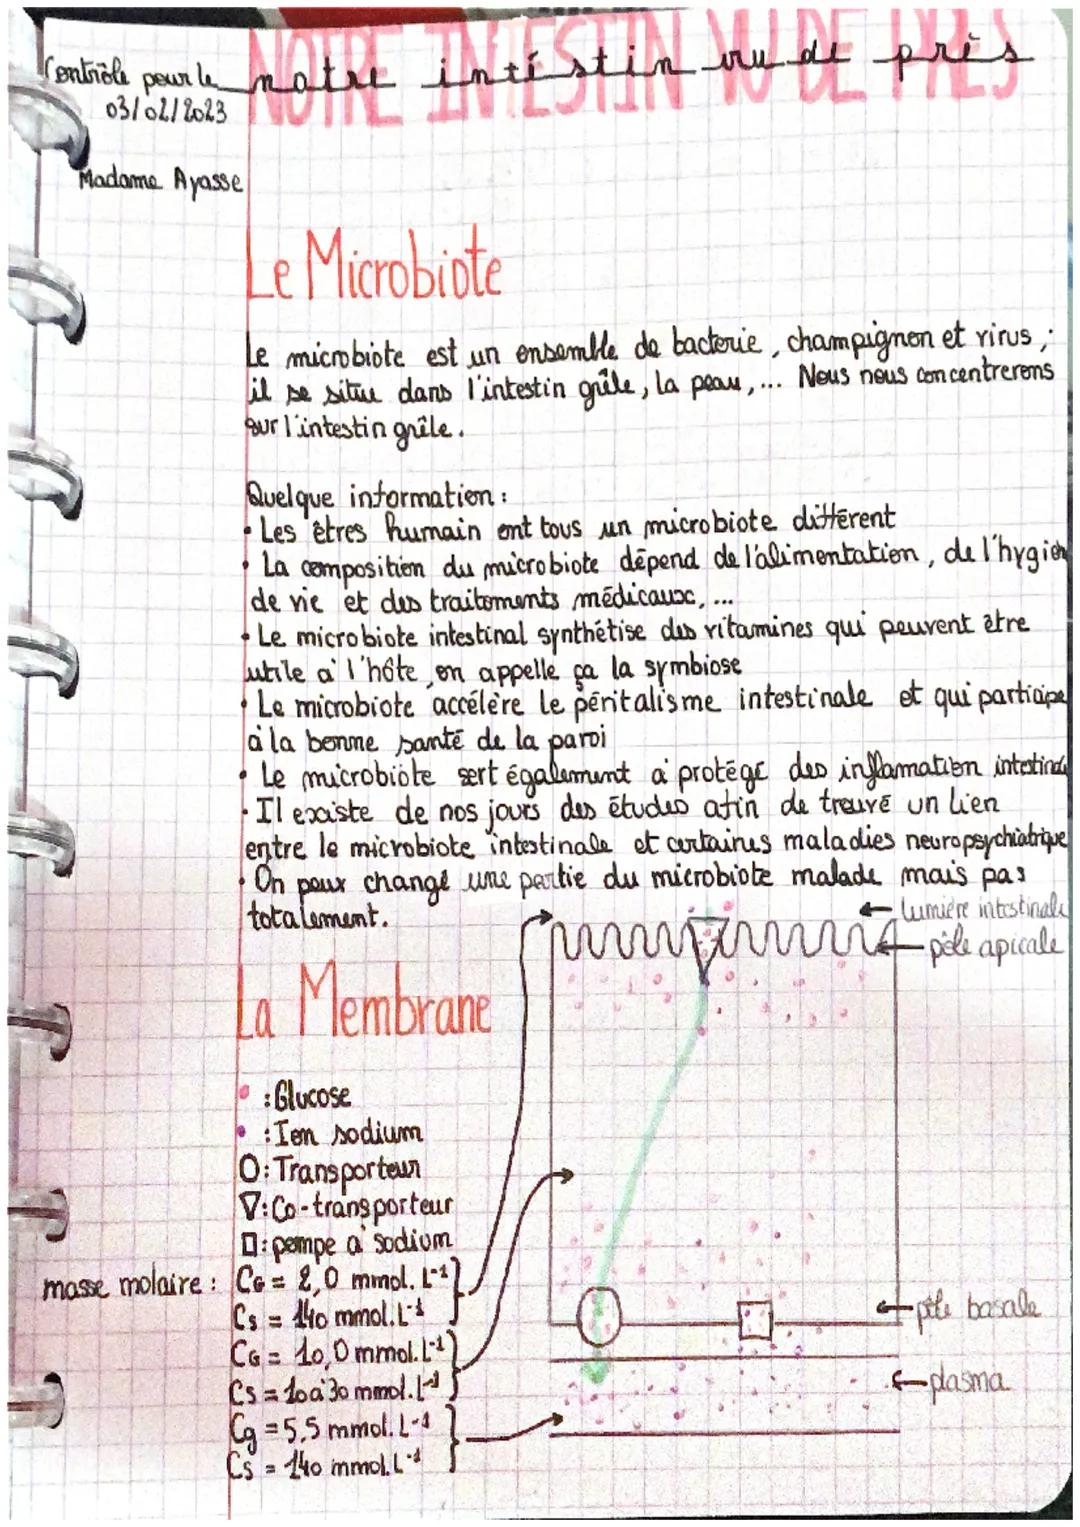 NOTRE INTESTIN VU DE PRÈS
notre intéstin vu de près
Contrôle pour le
03/02/2023
Madame Ayasse
Le Microbiote
Le microbiote est un ensemble de bacterie, champignon et virus ;
il se situe dans l'intestin grêle, la peau,... Nous nous concentrerons
sur l'intestin grêle.
Quelque information :
• Les êtres humain ont tous un microbiote différent
• La composition du microbiote dépend de l'alimentation, de l'hygièn
de vie et des traitements médicaux, ...
• Le microbiote intestinal synthétise des vitamines qui peuvent être
utile à l'hôte, on appelle ça la symbiose
• Le microbiote accélère le péritalisme intestinale et qui participe
à la bonne santé de la paroi
• Le microbiote sert également à protégé des inflamation intestinal
• Il existe de nos jours des études afin de trouvé un lien
entre le microbiote intestinale et certaines maladies neuropsychiatrique
• On peux changé une partie du microbiote malade mais pas
totalement.
← lumière intestinale
← pôle apicale
La Membrane
: Glucose
: Ion sodium
O: Transporteur
∇: Co-transporteur
□: pompe à sodium
masse molaire : CG = 2,0 mmol.L⁻¹
Cs = 140 mmol.L⁻¹
CG = 10,0 mmol.L⁻¹
Cs = 10 à 30 mmol.L⁻¹
Cg = 5,5 mmol.L⁻¹
Cs = 140 mmol.L⁻¹
← pôle basale
← plasma